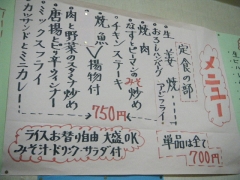 メニュー
定食の部
生姜焼
おろしハンバーグ
アジフライ
焼肉
なすとピーマンのみそ炒め
チキンステーキ
焼魚
揚物付
肉と野菜のスタミナ炒め
唐揚とウィンナー
ミックスフライ
カツサンドとミニカレー
750円
単品は全て
700円
ライスお替り自由 大盛OK
みそ汁・ドリンク・サラダ付